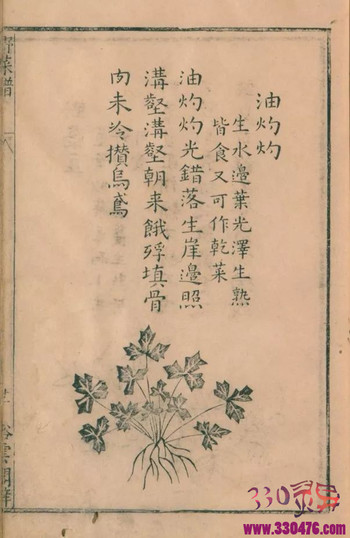 油灼灼
生水邉葉光澤生熟
皆食又可作乾菜
油灼灼光錯落生崖邉照
溝壑溝壑朝来餓殍填骨
肉未冷攅烏鳶
菜譜
330
www.330476.com